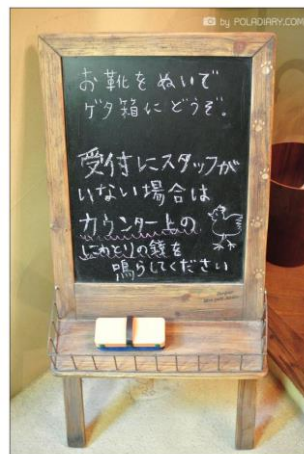 by POLADIARY.COM
お靴をぬいで
ゲタ箱にどうぞ。
受付にスタッフが
いない場合は
カウンター上の
にわとりの鐘を
鳴らしてください